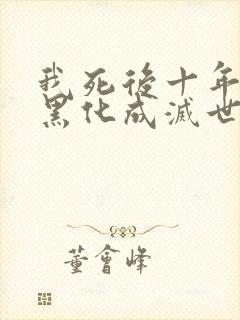 我死後十年
黑化成滅世
董會峰